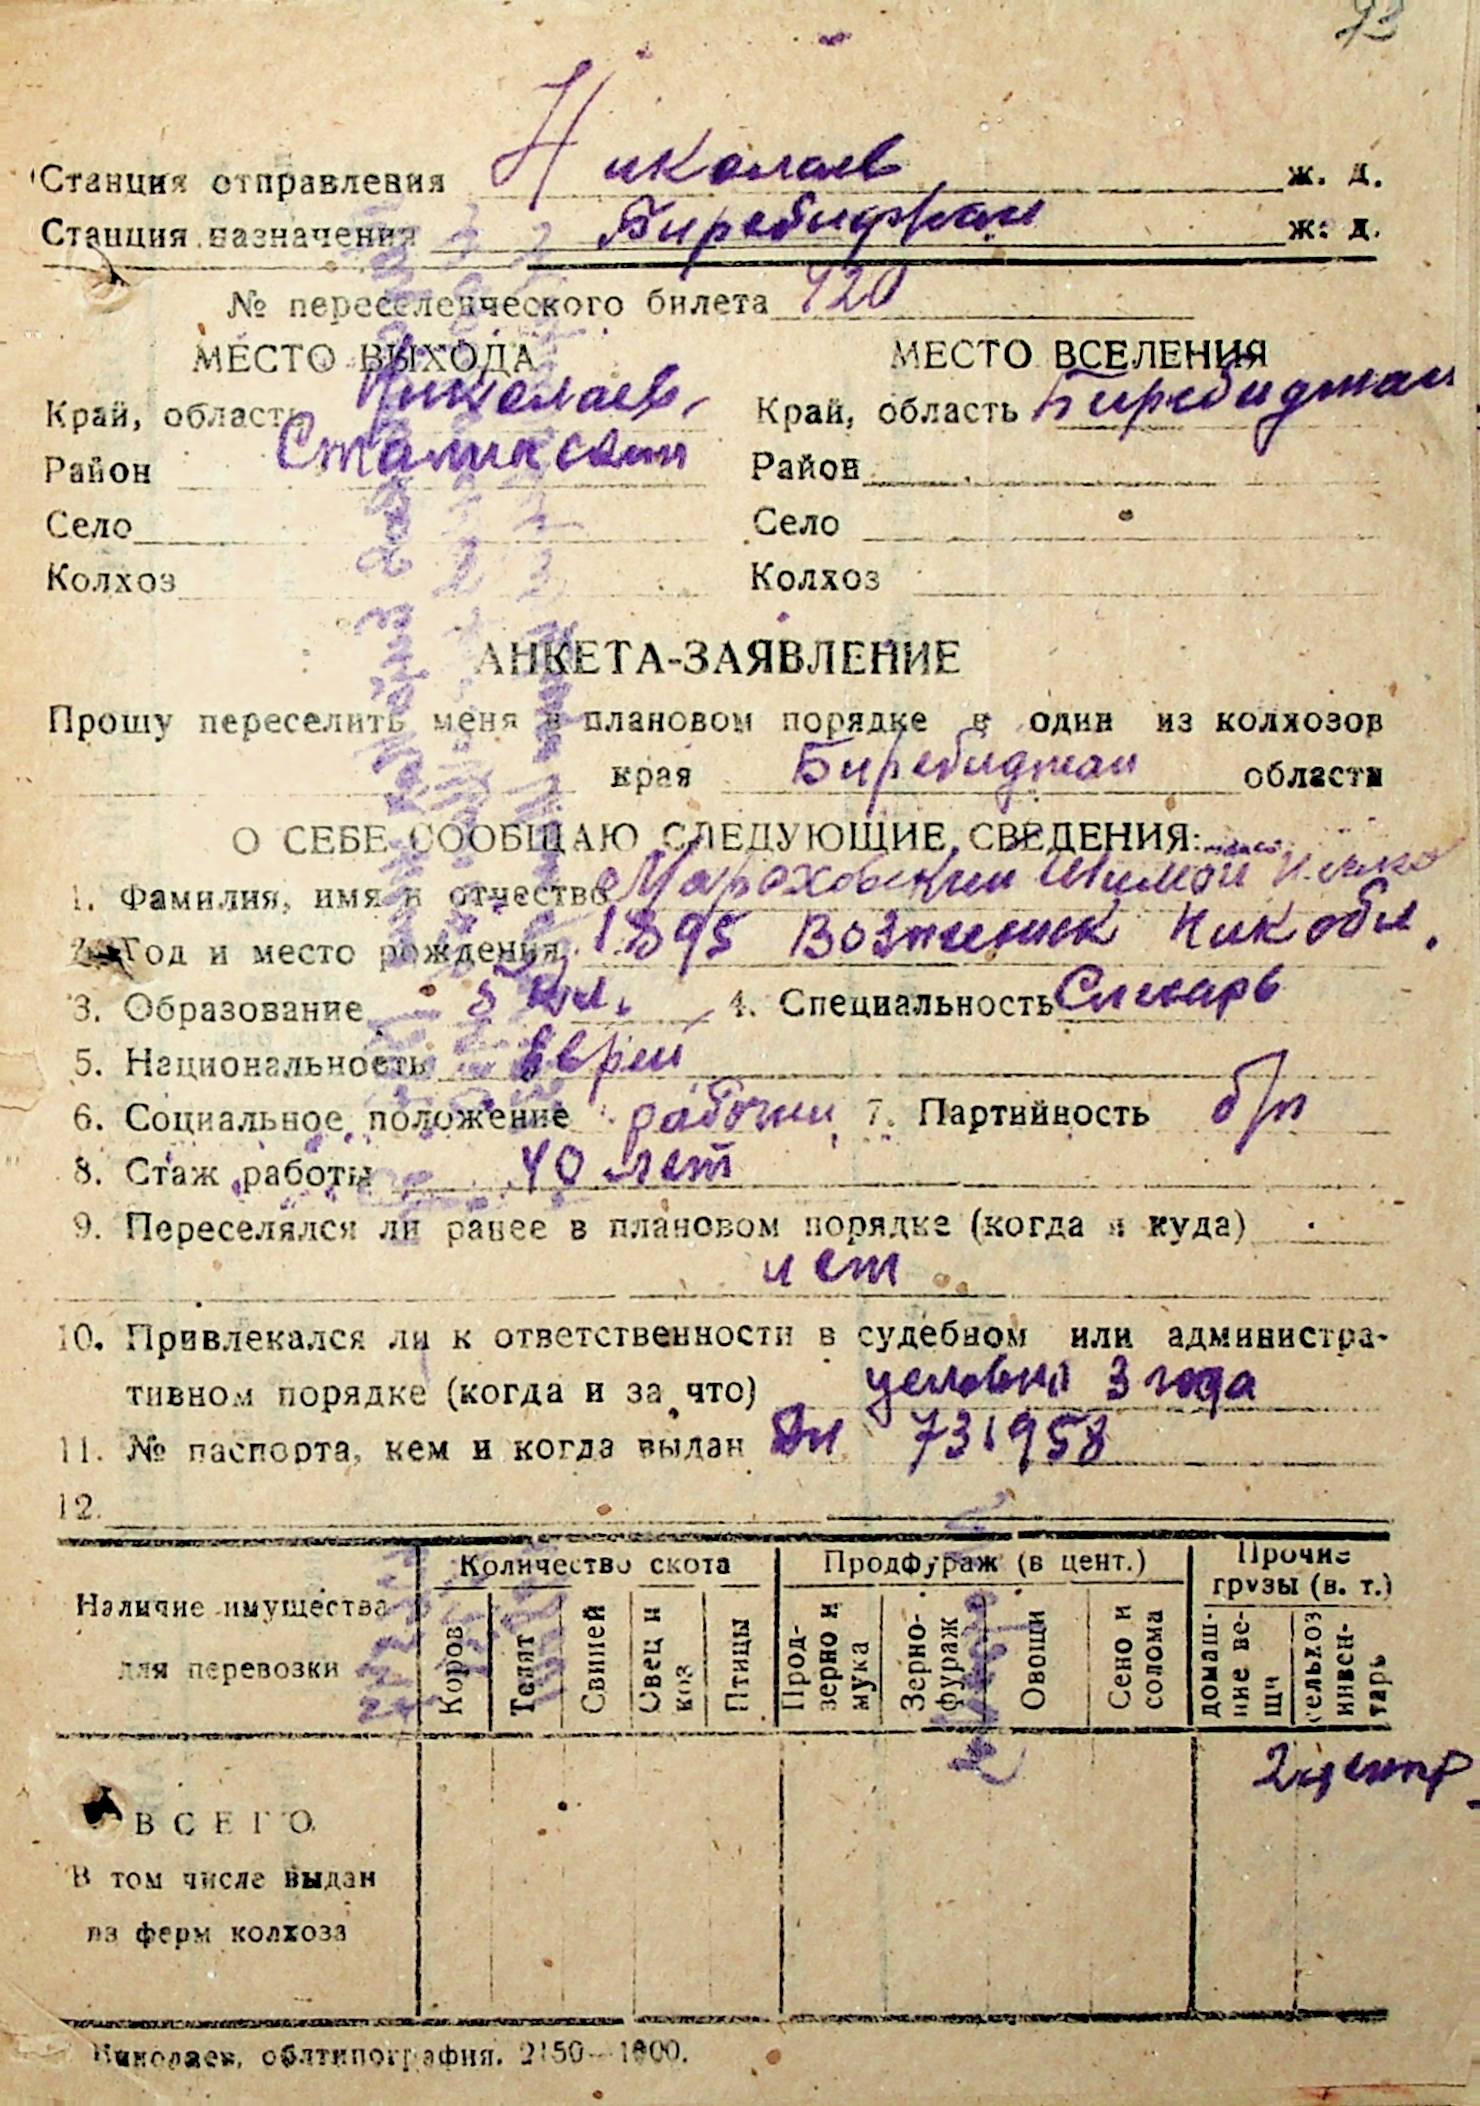 93
Станция отправления Николаев ж. д.
Станция назначения Биребиджан ж. д.
№ переселенческого билета 420
МЕСТО ВЫХОДА МЕСТО ВСЕЛЕНИЯ
Край, область Николаев, Край, область Биребиджан
Район Сталинский Район
Село Село
Колхоз Колхоз
АНКЕТА-ЗАЯВЛЕНИЕ
Прошу переселить меня в плановом порядке в один из колхозов
края Биребиджан области
О СЕБЕ СООБЩАЮ СЛЕДУЮЩИЕ СВЕДЕНИЯ:
1. Фамилия, имя и отчество Мараховский Шимон
2. Год и место рождения 1895 Вознесенск Ник обл.
3. Образование 5 кл. 4. Специальность Слесарь
5. Национальность Еврей
6. Социальное положение рабочий 7. Партийность б/п
8. Стаж работы 40 лет
9. Переселялся ли ранее в плановом порядке (когда и куда)
нет
10. Привлекался ли к ответственности в судебном или администра-
тивном порядке (когда и за что) условно 3 года
11. № паспорта, кем и когда выдан 731958
12.
Наличие имущества для перевозки
Количество скота Продфураж (в цент.) Прочие грузы (в. т.)
Коров Телят Свиней Овец и коз Птицы Прод-зерно и мука Зерно-фураж Овощи Сено и солома домаш-ние ве-щи сельхоз инвен-тарь
2 центр
ВСЕГО
В том числе выдан
из ферм колхоза
Николаев, облтипография. 2150—1000.